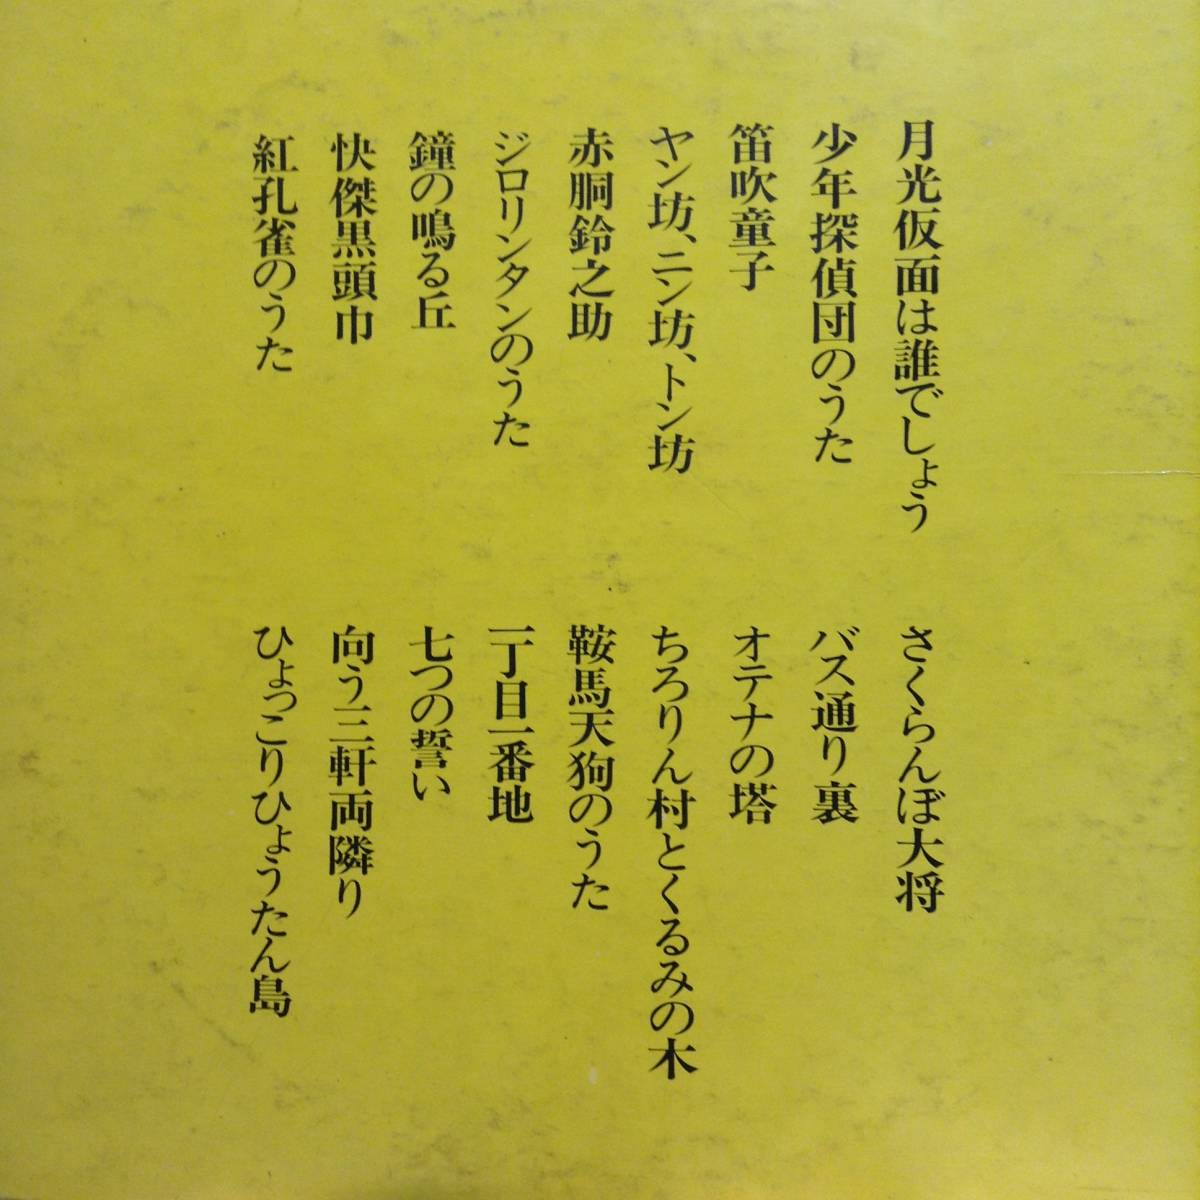 月光仮面は誰でしょう
少年探偵団のうた
笛吹童子
ヤン坊、ニン坊、トン坊
赤胴鈴之助
ジロリンタンのうた
鐘の鳴る丘
快傑黒頭巾
紅孔雀のうた
さくらんぼ大将
バス通り裏
オテナの塔
ちろりん村とくるみの木
鞍馬天狗のうた
一丁目一番地
七つの誓い
向う三軒両隣り
ひょっこりひょうたん島